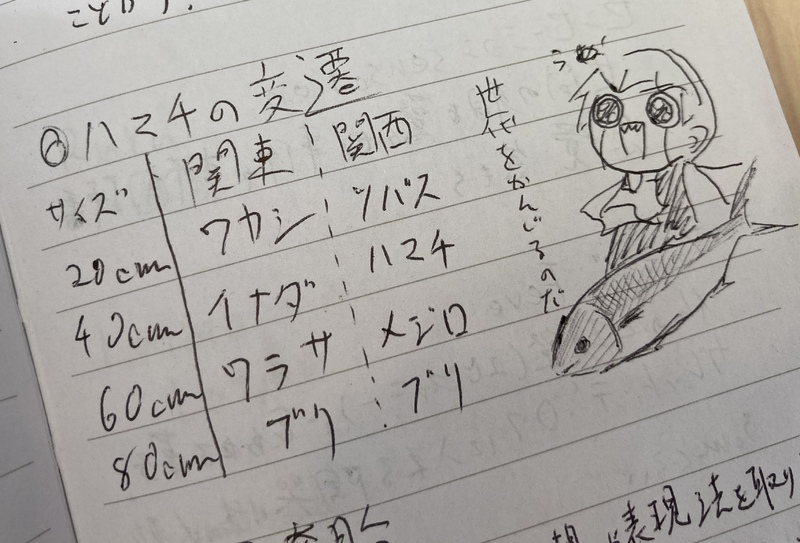 ことから.
◎ハマチの変遷
サイズ 関東 関西
20cm ワカシ ツバス
40cm イナダ ハマチ
60cm ワラサ メジロ
80cm ブリ ブリ
世代をかんじるのだ
表現法を取り